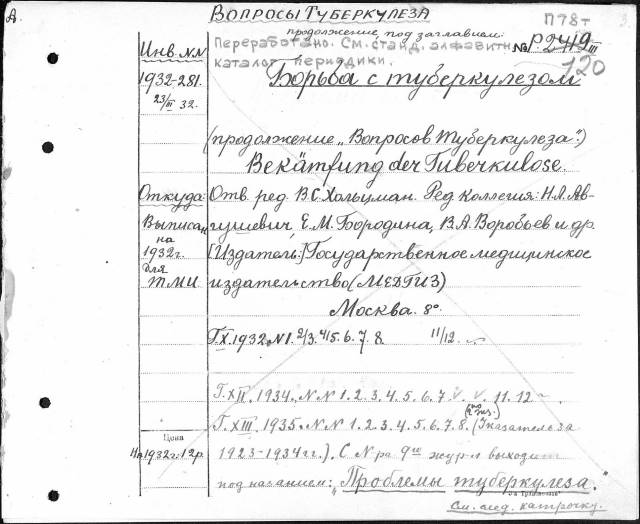 А.
Вопросы Туберкулеза
П78т
продолжение под заглавием:
Переработано. См. станд. алфавитн.
каталог периодики.
№ Р2419 III
120
Инв. NN
1932-281.
23/III 32.
Борьба с туберкулезом
(продолжение "Вопросов Туберкулеза".)
Bekämfung der Tuberkulose.
Откуда:
Выписан
на
1932г.
для
ТМИ.
Отв. ред. В.С. Хольцман. Ред. коллегия: Н.Л. Ав-
гушевич, Е.М. Бородина, В.А. Воробьев и др.
[Издатель:] Государственное медицинское
издательство (МЕДГИЗ)
Москва. 8°.
Г. X. 1932. N 1. 2/3. 4/5. 6. 7. 8 11/12.
Г. XII. 1934. NN 1. 2. 3. 4. 5. 6. 7. v. v. 11. 12
Г. XIII. 1935. NN 1. 2. 3. 4. 5. 6. 7. 8. (Указатель за
1923-1934гг.). С N'ра 9го журнл выходит
под названием: "Проблемы туберкулеза."
Цена
На 1932г. 12р.
См. след. карточку.